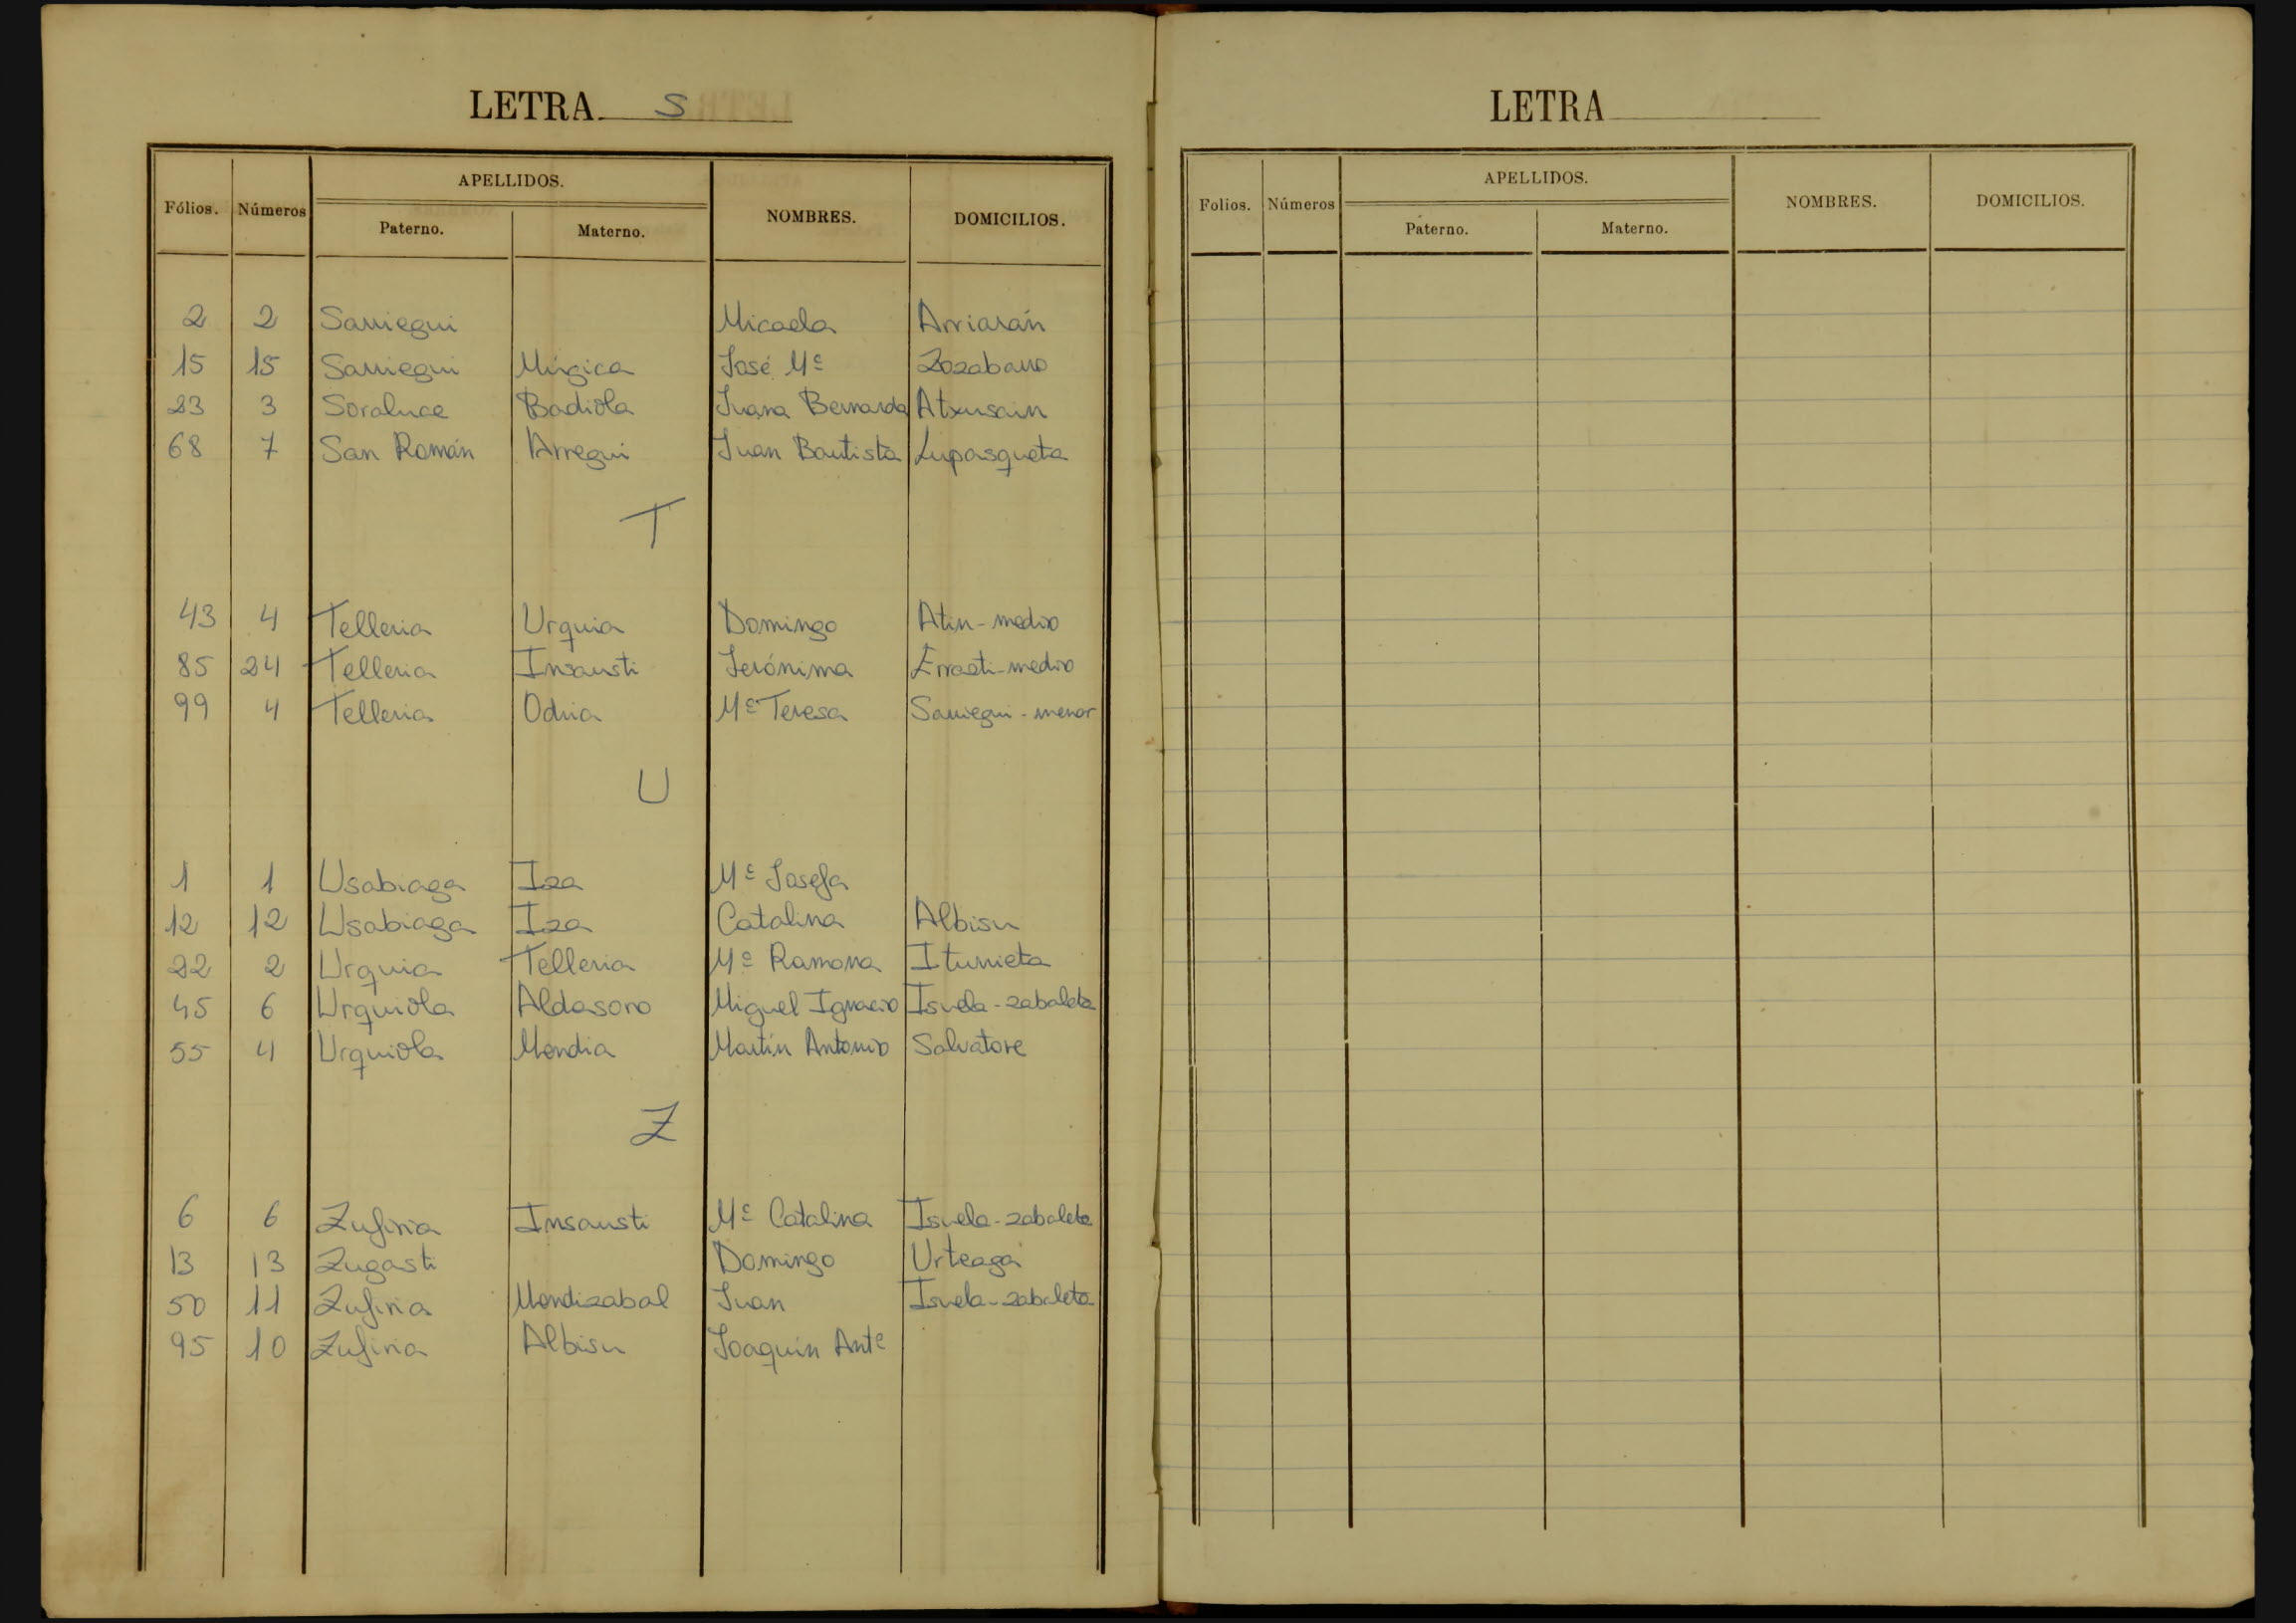 LETRA S
Fólios. Números APELLIDOS. Paterno. Materno. NOMBRES. DOMICILIOS.
2 2 Sarriegui Micaela Arriarán
15 15 Sarriegui Múgica José Mª Zozabarro
23 3 Soraluce Badiola Juana Bernarda Atxusain
68 7 San Román Arregui Juan Bautista Lupasqueta
T
43 4 Telleria Urquia Domingo Atin-medio
85 24 Telleria Insausti Jerónima Errasti-medio
99 4 Telleria Odria Mª Teresa Sarriegui-menor
U
1 1 Usabiaga Iza Mª Josefa
12 12 Usabiaga Iza Catalina Albisu
22 2 Urquia Telleria Mª Ramona Iturrieta
45 6 Urquiola Aldasoro Miguel Ignacio Isuela-zabaleta
55 4 Urquiola Mendia Martín Antonio Salvatore
Z
6 6 Zufiria Insausti Mª Catalina Isuela-zabaleta
13 13 Zugasti Domingo Urteaga
50 11 Zufiria Mendizabal Juan Isuela-zabaleta
95 10 Zufiria Albisu Joaquín Antº
LETRA
Folios. Números APELLIDOS. Paterno. Materno. NOMBRES. DOMICILIOS.